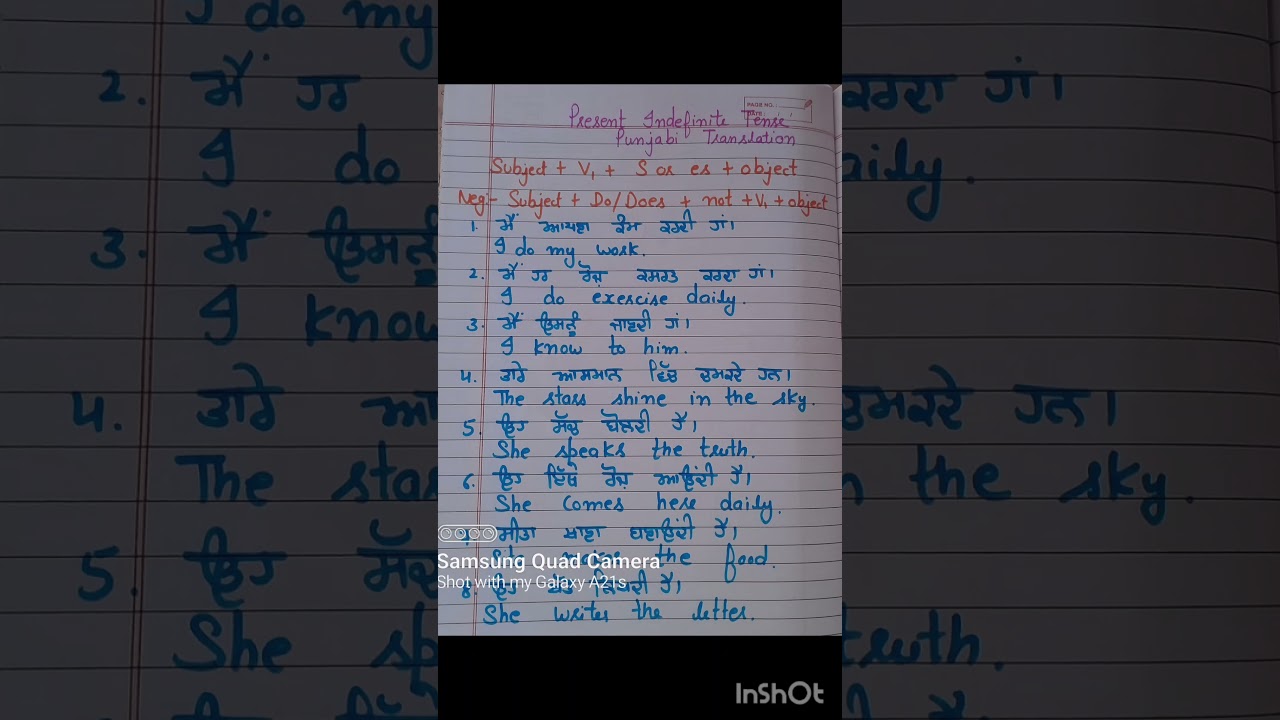 PAGE NO.:
Present Indefinite Tense
Punjabi Translation
Subject + V₁ + S or es + object
Neg:- Subject + Do/Does + not + V₁ + object
1. ਮੈਂ ਆਪਣਾ ਕੰਮ ਕਰਦੀ ਹਾਂ।
I do my work.
2. ਮੈਂ ਹਰ ਰੋਜ਼ ਕਸਰਤ ਕਰਦਾ ਹਾਂ।
I do exercise daily.
3. ਮੈਂ ਉਸਨੂੰ ਜਾਣਦੀ ਹਾਂ।
I know to him.
4. ਤਾਰੇ ਆਸਮਾਨ ਵਿੱਚ ਚਮਕਦੇ ਹਨ।
The stars shine in the sky.
5. ਉਹ ਸੱਚ ਬੋਲਦੀ ਹੈ।
She speaks the truth.
6. ਉਹ ਇੱਥੇ ਰੋਜ਼ ਆਉਂਦੀ ਹੈ।
She comes here daily.
ਸੀਤਾ ਖਾਣਾ ਬਣਾਉਂਦੀ ਹੈ।
the food.
Samsung Quad Camera
Shot with my Galaxy A21s
8. ਉਹ ਹੈ।
She writes the letter.
InShOt